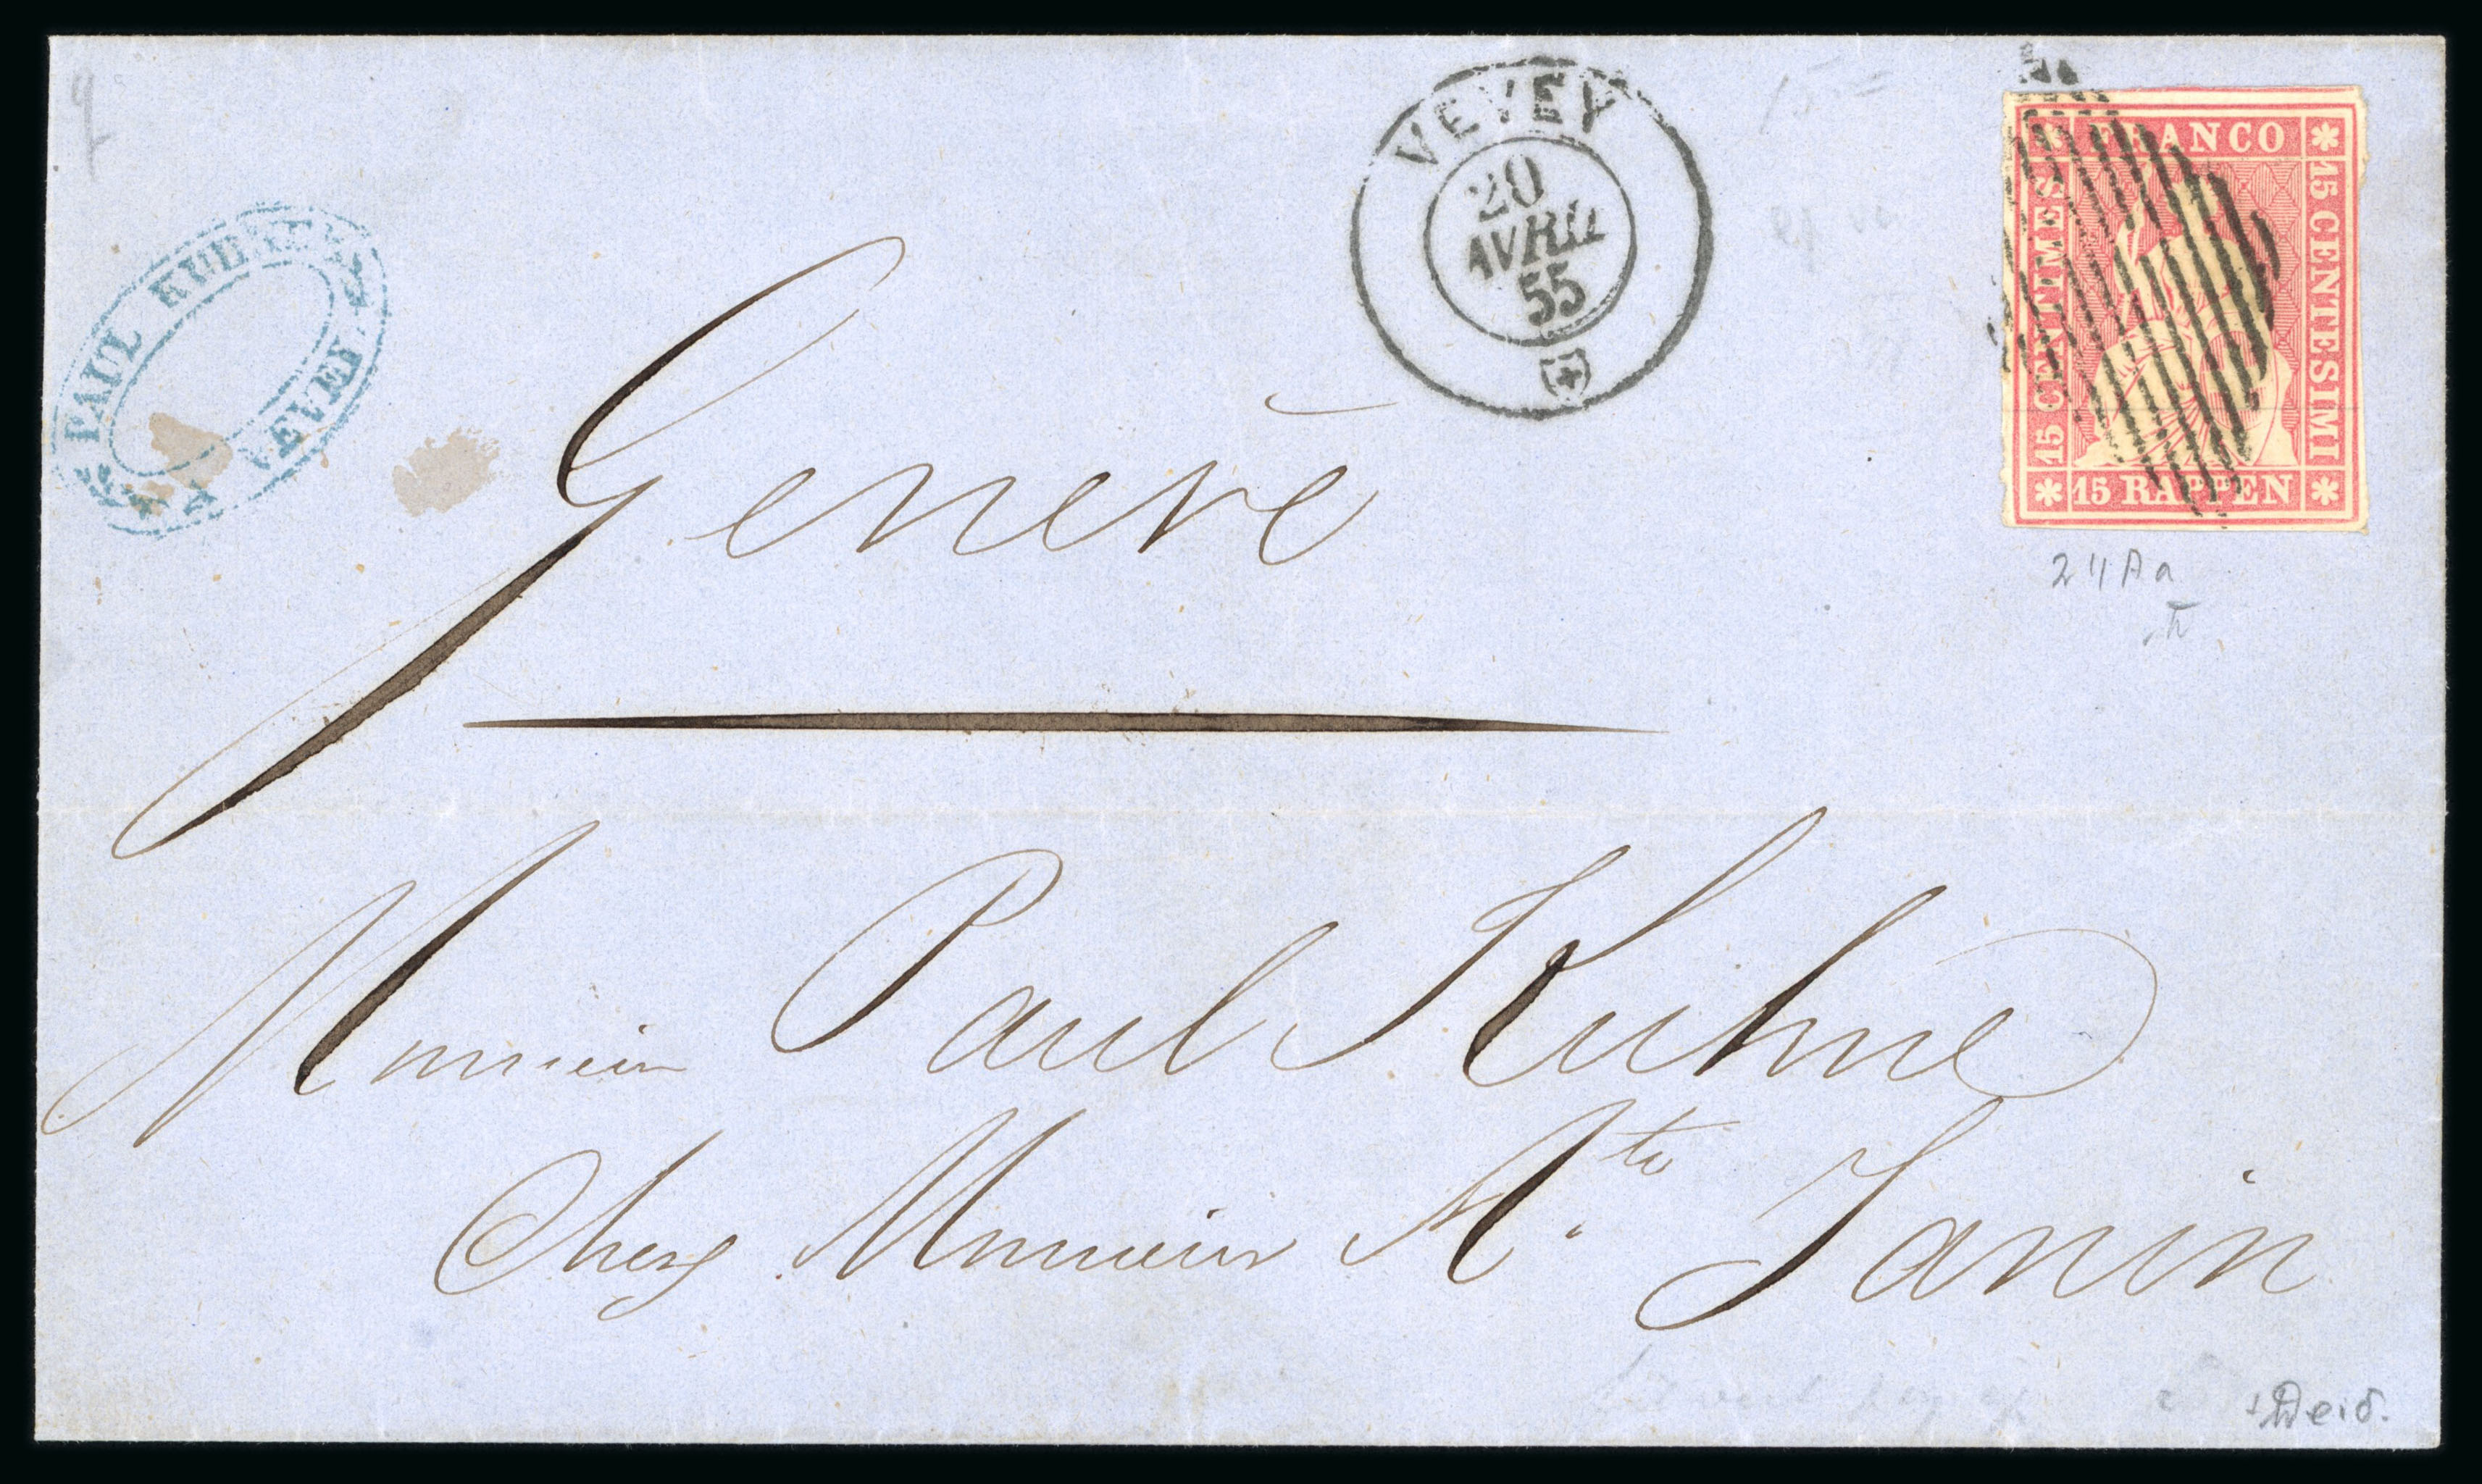 VEVEY
20
AVRIL
55
FRANCO
15 CENTIMES
15 CENTESIMI
15 RAPPEN
PAUL
À VEVEY
24Aa
Genève
Monsieur Paul Kuhne
Chez Monsieur A.te Janin